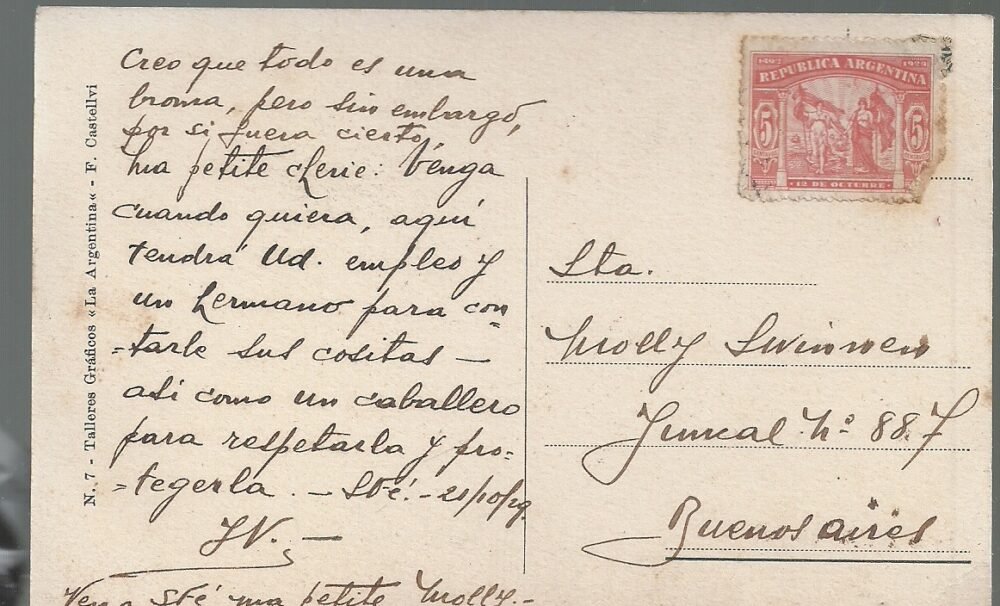 N. 7 - Talleres Gráficos «La Argentina« - F. Castellvi
Creo que todo es una
broma, pero sin embargo,
por si fuera cierto,
ma petite cherie: Venga
cuando quiera, aquí
tendrá Ud. empleo y
un hermano para con-
-tarle sus cositas —
así como un caballero
para respetarla y pro-
-tegerla. — Sta Fé. - 21/10/29
Venga Sta Fé ma petite Molly. -
1492 1929
REPUBLICA ARGENTINA
5 5
12 DE OCTUBRE
Sta.
Molly Swinnen
Juncal Nº 887
Buenos aires